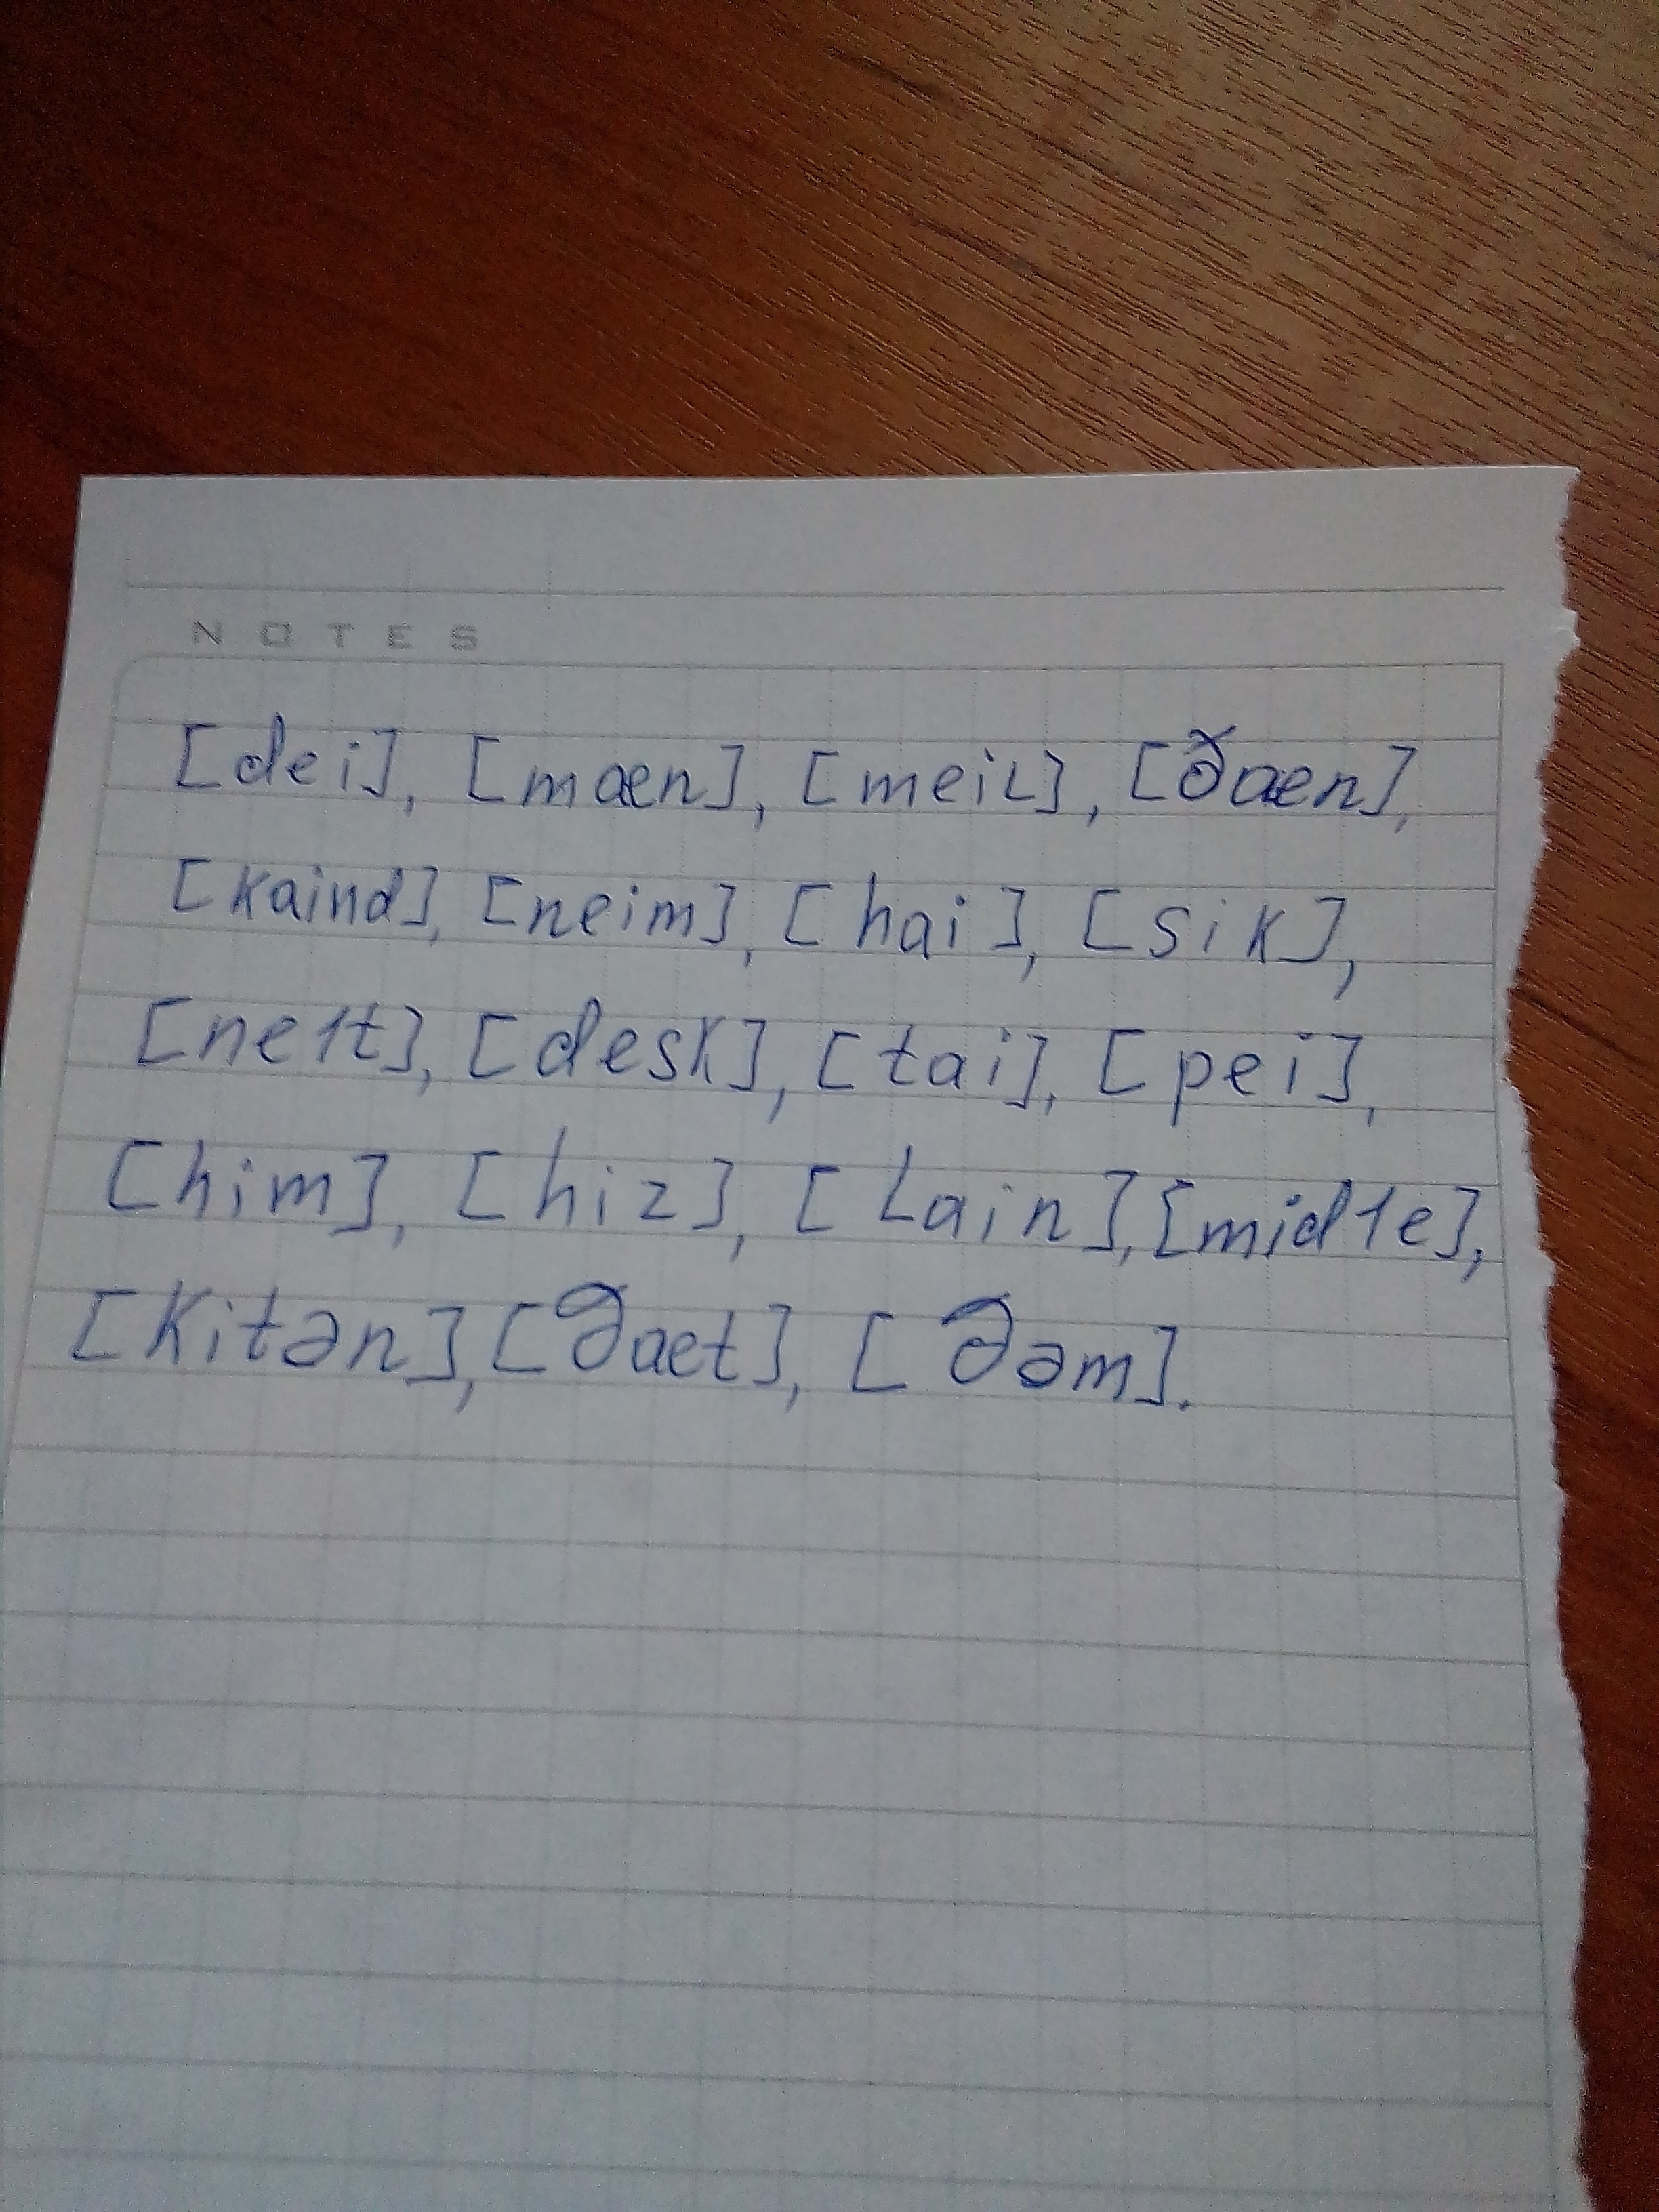 NOTES
[dei], [mæn], [meil], [ðæn],
[kaind], [neim], [hai], [sik],
[ne1t], [desk], [tai], [pei],
[him], [hiz], [Lain], [mid1e],
[Kitən], [ðaet], [ðəm].